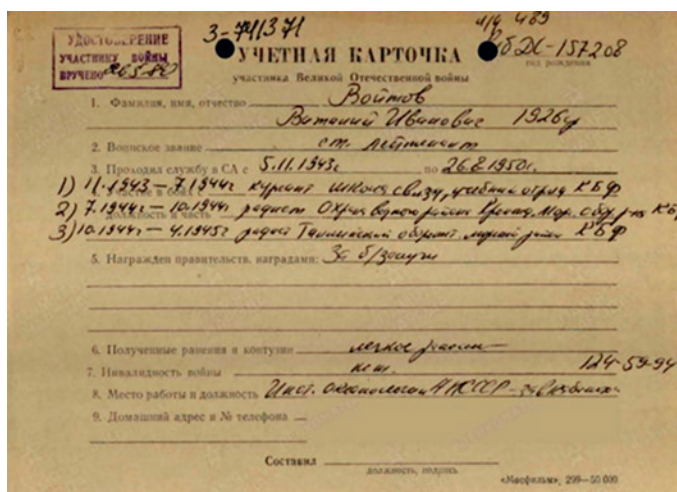 3-741371
л/д 489
УДОСТОВЕРЕНИЕ
УЧАСТНИКУ ВОЙНЫ
ВРУЧЕНО
УЧЕТНАЯ КАРТОЧКА
ДС-157208
год рождения
участника Великой Отечественной войны
1. Фамилия, имя, отчество Войтов
Виталий Иванович 1926г
2. Воинское звание ст. лейтенант
3. Проходил службу в СА с 5.11.1943г по 26.8.1950г.
1) 11.1943 — 7.1944г курсант школа связи, учебный отряд КБФ
2) 7.1944г — 10.1944г радист Охраны водного района Кроншт. Мор. обор. р-на КБФ
должность и часть
3) 10.1944г — 4.1945г радист Таллинский оборонит. морской район КБФ
5. Награжден правительств. наградами: За б/заслуги
6. Полученные ранения и контузии легкое ранен
7. Инвалидность войны нет. 124-59-94
8. Место работы и должность Инст. океанологии АН СССР -
9. Домашний адрес и № телефона
Составил
должность, подпись
«Мосфильм», 299—50 000